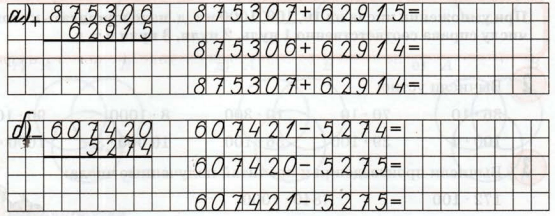 а) + 875306 875307 + 62915 =
62915
875306 + 62914 =
875307 + 62914 =
б) - 607420 607421 - 5274 =
5274
607420 - 5275 =
607421 - 5275 =